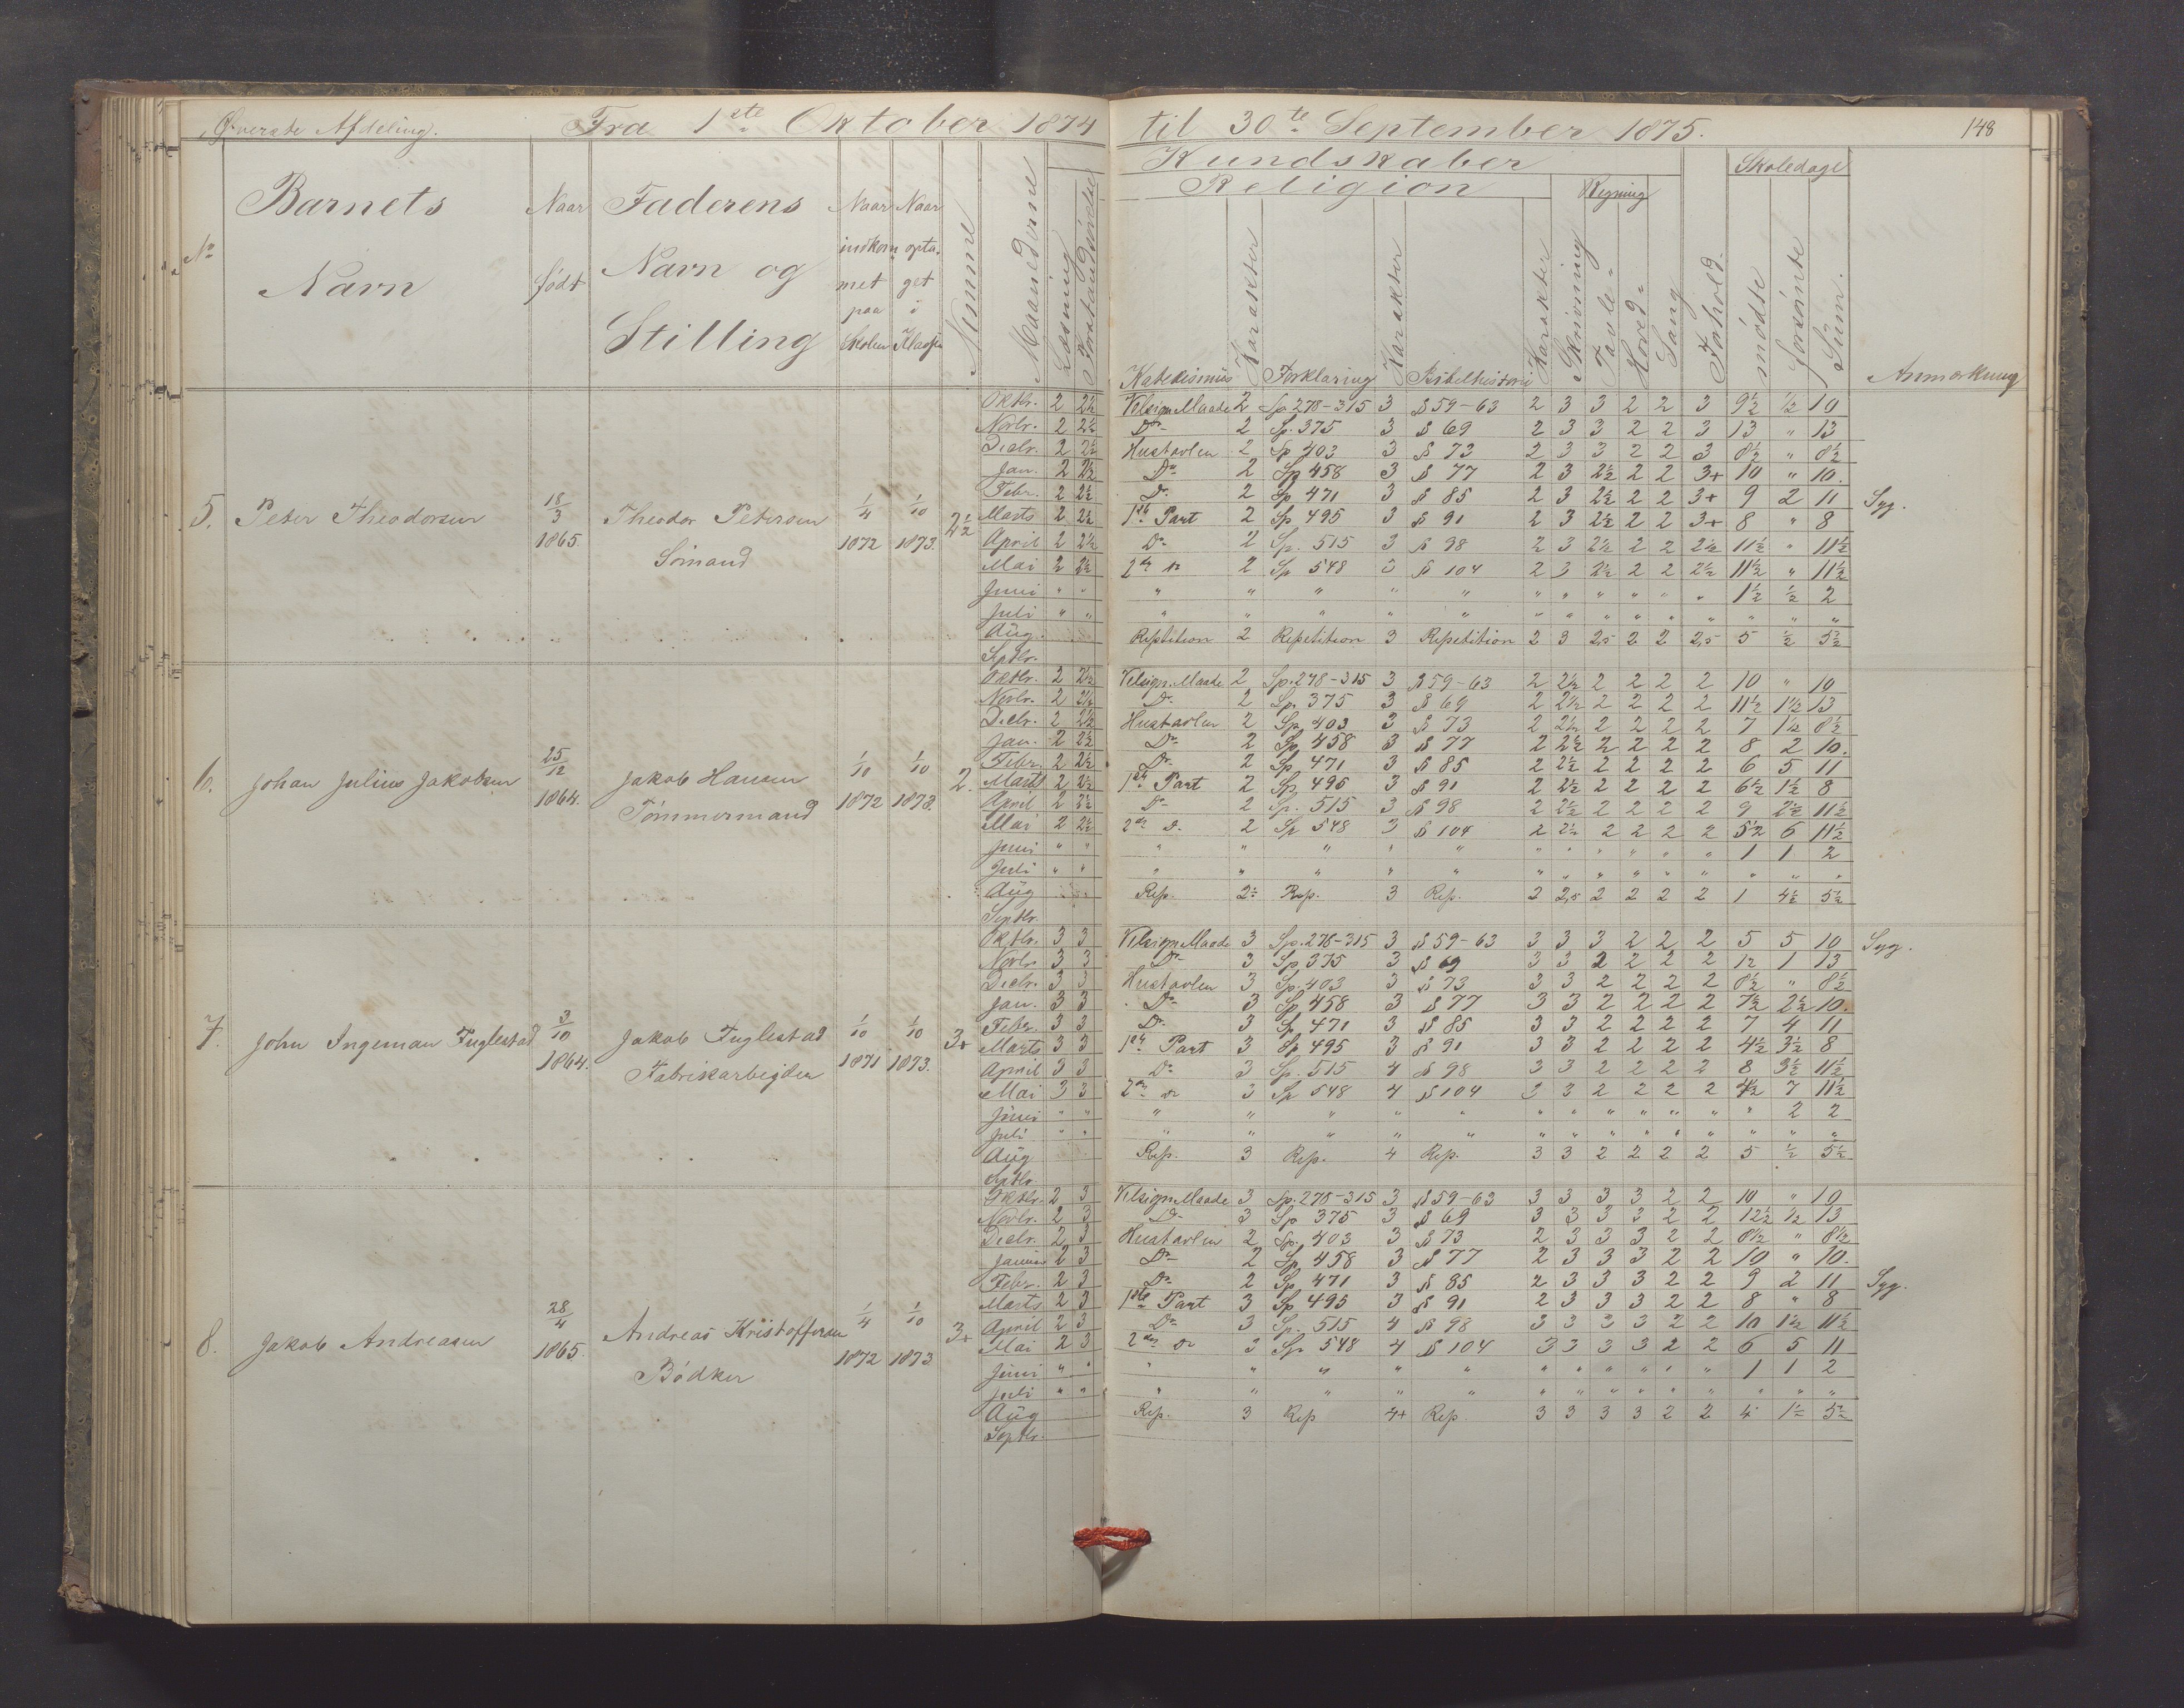 Øverste Afdeling. Fra 1ste Oktober 1874 til 30te September 1875. 148
No Barnets Navn Naar født Faderens Navn og Stilling Naar indkommet paa Skolen Naar optaget i Klassen Nemme Maanederne Læsning Forstandsøvelse
Kundskaber Skoledage
Religion Regning
Katekismus Karakter Forklaring Karakter Bibelhistorie Karakter Skrivning Tavle- Hoved- Sang Forhold. mødte forsømte Sum. Anmærkning
5. Peter Theodorsen 18/3 1865. Theodor Petersen Sömand 1/4 1872 1/10 1873. 2½
Oktbr. 2 2½ Velsign. Maade 2 Sp. 278-315 3 § 59-63 2 3 3 2 2 3 9½ ½ 10
Novbr. 2 2½ Do 2 Sp. 375 3 § 69 2 3 3 2 2 3 13 " 13
Decbr. 2 2½ Hustavlen 2 Sp 403 3 § 73 2 3 3 2 2 3 8½ " 8½
Jan. 2 2½ Do 2 Sp 458 3 § 77 2 3 2½ 2 2 3+ 10 " 10.
Febr. 2 2½ Do 2 Sp 471 3 § 85 2 3 2½ 2 2 3+ 9 2 11 Syg.
Marts 2 2½ 1ste Part 2 Sp 495 3 § 91 2 3 2½ 2 2 3+ 8 " 8
April 2 2½ Do 2 Sp. 515 3 § 98 2 3 2½ 2 2 2½ 11½ " 11½
Mai 2 2½ 2den Do 2 Sp 548 3 § 104 2 3 2½ 2 2 2½ 11½ " 11½
Juni " " " " " " " " " " " " " 1½ ½ 2
Juli " " " " " " " " " " " " " " " "
Aug. Reptition 2 Repetition 3 Repetition 2 3 2,5 2 2 2,5 5 ½ 5½
Septbr.
6. Johan Julius Jakobsen 25/12 1864. Jakob Hansen Tømmermand 1/10 1872 1/10 1873. 2.
Oktbr. 2 2½ Velsign. Maade 2 Sp. 278-315 3 § 59-63 2 2½ 2 2 2 2 10 " 10
Novbr. 2 2½ Do 2 Sp. 375 3 § 69 2 2½ 2 2 2 2 11½ 1½ 13
Decbr. 2 2½ Hustavlen 2 Sp 403 3 § 73 2 2½ 2 2 2 2 7 1½ 8½
Jan. 2 2½ Do 2 Sp 458 3 § 77 2 2½ 2 2 2 2 8 2 10.
Febr. 2 2½ Do 2 Sp 471 3 § 85 2 2½ 2 2 2 2 6 5 11
Marts 2 2½ 1ste Part 2 Sp 495 3 § 91 2 2½ 2 2 2 2 6½ 1½ 8
April 2 2½ Do 2 Sp. 515 3 § 98 2 2½ 2 2 2 2 9 2½ 11½
Mai 2 2½ 2den D. 2 Sp 548 3 § 104 2 2½ 2 2 2 2 5½ 6 11½
Juni " " " " " " " " " " " " " 1 1 2
Juli " " " " " " " " " " " " " " " "
Aug Rep. 2½ Rep. 3 Rep. 2 2,5 2 2 2 2 1 4½ 5½
Septbr.
7. John Ingeman Fuglestad 3/10 1864. Jakob Fuglestad Fabrikarbejder 1/10 1871 1/10 1873. 3+
Oktbr. 3 3 Velsign Maade 3 Sp. 278-315 3 § 59-63 3 3 3 2 2 2 5 5 10 Syg.
Novbr. 3 3 Do 3 Sp 375 3 § 69 3 3 2 2 2 2 12 1 13
Decbr. 3 3 Hustavlen 3 Sp. 403 3 § 73 3 3 2 2 2 2 8½ " 8½
Jan. 3 3 Do 3 Sp 458 3 § 77 3 3 2 2 2 2 7½ 2½ 10.
Febr. 3 3 Do 3 Sp 471 3 § 85 3 3 2 2 2 2 7 4 11
Marts 3 3 1ste Part 3 Sp 495 3 § 91 3 3 2 2 2 2 4½ 3½ 8
April 3 3 Do 3 Sp. 515 4 § 98 3 3 2 2 2 2 8 3½ 11½
Mai 3 3 2den Do 3 Sp 548 4 § 104 3 3 2 2 2 2 4½ 7 11½
Juni " " " " " " " " " " " " " " 2 2
Juli " " " " " " " " " " " " " " " "
Aug Rep. 3 Rep. 4 Rep. 3 3 2 2 2 2 5 ½ 5½
Septbr.
8. Jakob Andreasen 28/4 1865. Andreas Kristoffersen Bødker 1/4 1872 1/10 1873 3+
Oktbr. 2 3 Velsign Maade 3 Sp. 278-315 3 § 59-63 3 3 3 3 2 2 10 " 10
Novbr. 2 3 Do 3 Sp 375 3 § 69 3 3 3 3 2 2 12½ ½ 13
Decbr. 2 3 Hustavlen 2 Sp. 403 3 § 73 2 3 3 3 2 2 8½ " 8½
Januar 2 3 Do 2 Sp 458 3 § 77 2 3 3 3 2 2 10 " 10.
Febr. 2 3 Do 2 Sp 471 3 § 85 2 3 3 3 2 2 9 2 11 Syg.
Marts 2 3 1ste Part 3 Sp 495 3 § 91 2 3 3 3 2 2 8 " 8
April 2 3 Do 3 Sp. 515 4 § 98 3 3 3 3 2 2 10 1½ 11½
Mai 2 3 2den Do 3 Sp 548 4 § 104 3 3 3 3 2 2 6 5 11
Juni " " " " " " " " " " " " " 1 1 2
Juli " " " " " " " " " " " " " " " "
Aug Rep. 3 Rep 4+ Rep. 3 3 3 3 2 2 4 1½ 5½
Septbr.